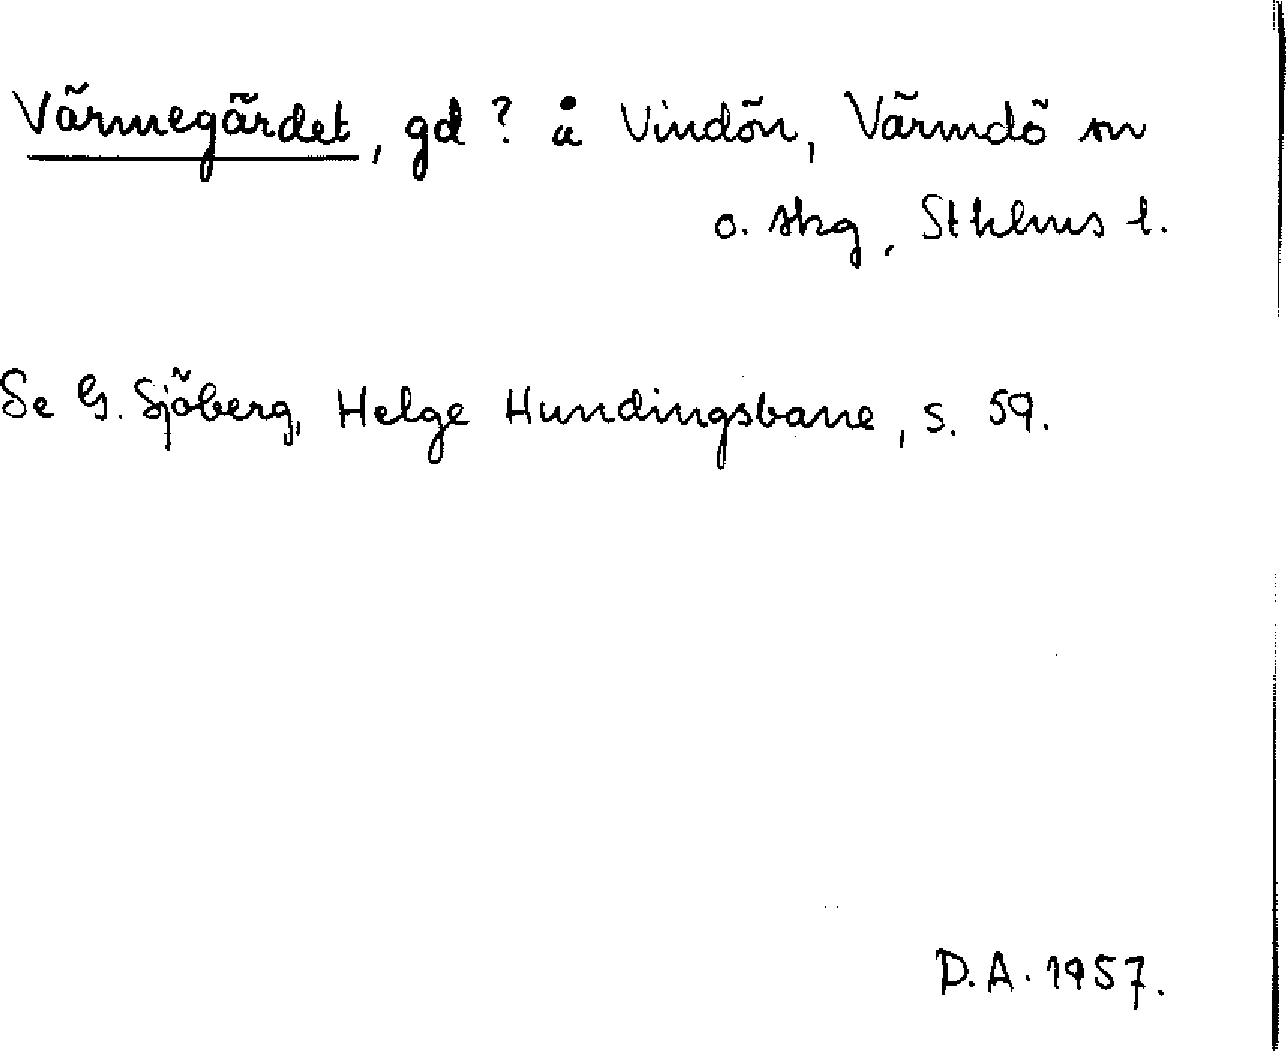 Värmegärdet, gd? å Vindön, Värmdö sn
o. skg, Sthlms l.
Se G. Sjöberg, Helge Hundingsbane, s. 59.
D.A. 1957.